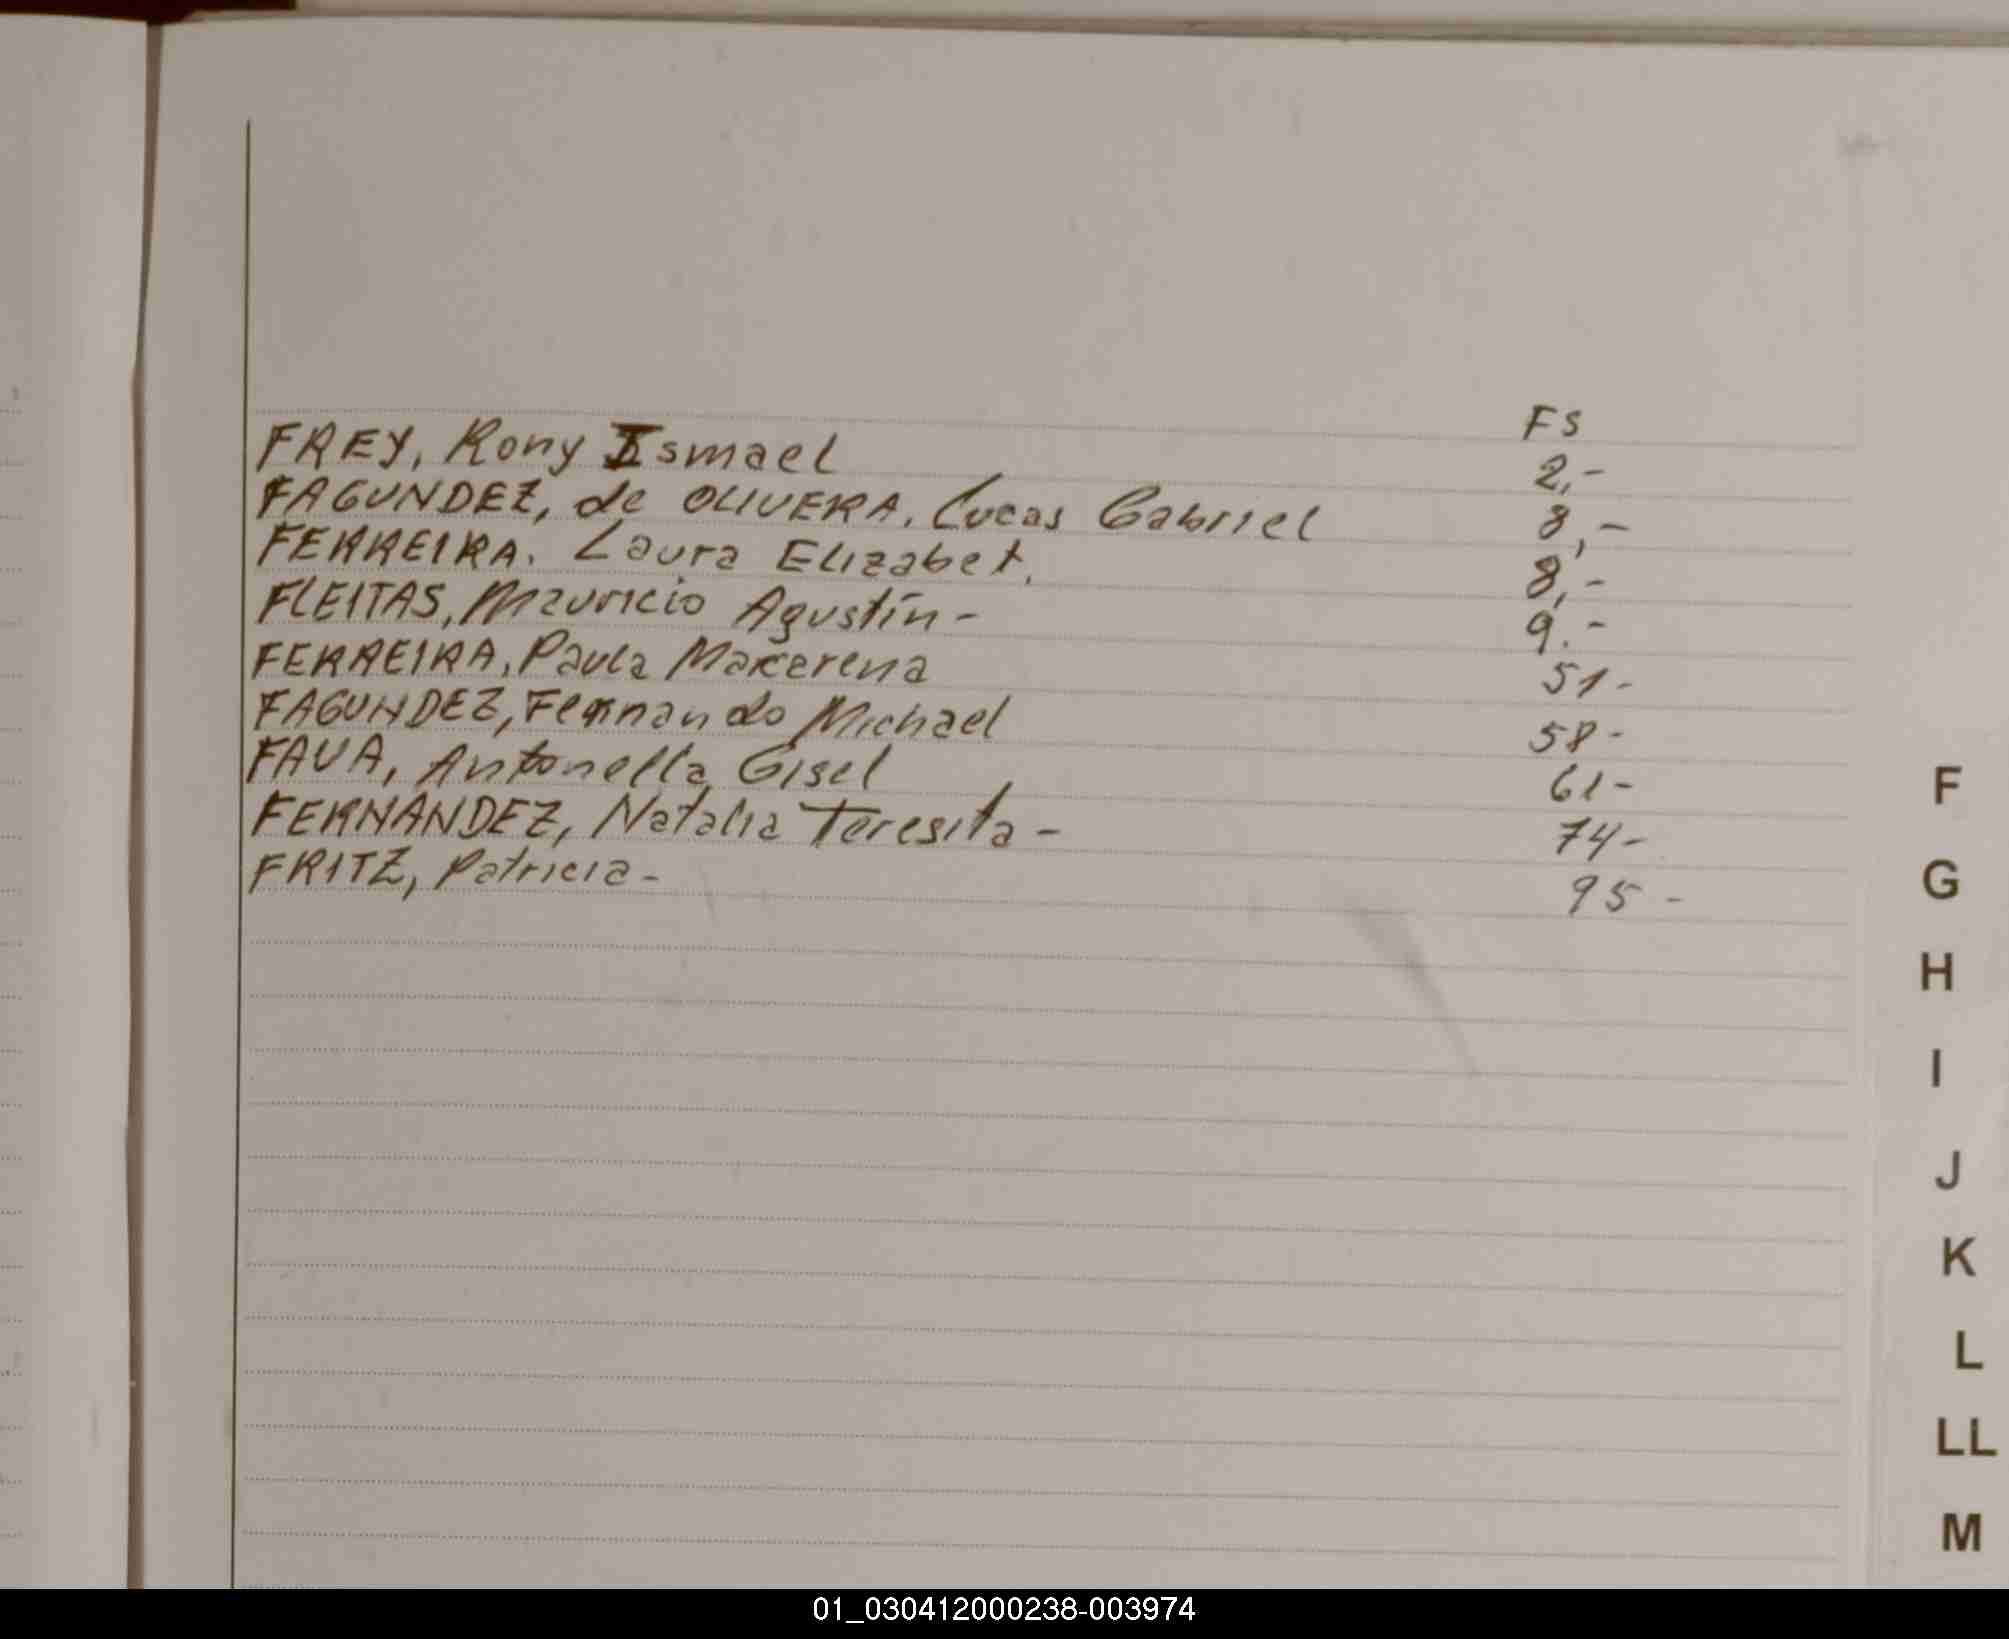 FS
FREY, Rony Ismael 2,-
FAGUNDEZ, de OLIVERA, Lucas Gabriel 8,-
FERREIRA. Laura Elizabet. 8,-
FLEITAS, Mauricio Agustín - 9.-
FERREIRA, Paula Macerena 51-
FAGUNDEZ, Fernando Michael 58-
FAVA, Antonella Gisel 61-
FERNANDEZ, Natalia Teresita - 74-
FRITZ, Patricia - 95 -
F
G
H
I
J
K
L
LL
M
01_030412000238-003974